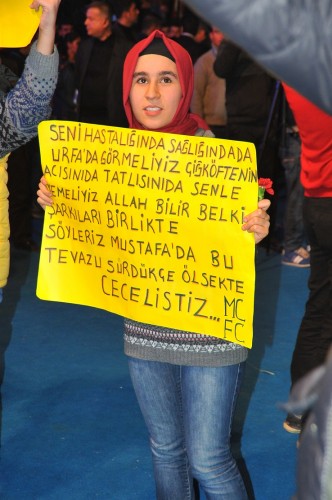 SENİ HASTALIĞINDA SAĞLIĞINDADA
URFA'DA GÖRMELİYİZ ÇİĞKÖFTENİN
ACISINIDA TATLISINIDA SENLE
YEMELİYİZ ALLAH BİLİR BELKİ
ŞARKILARI BİRLİKTE
SÖYLERİZ MUSTAFA'DA BU
TEVAZU SÜRDÜKÇE ÖLSEKTE
CECELİSTİZ... MC
FC